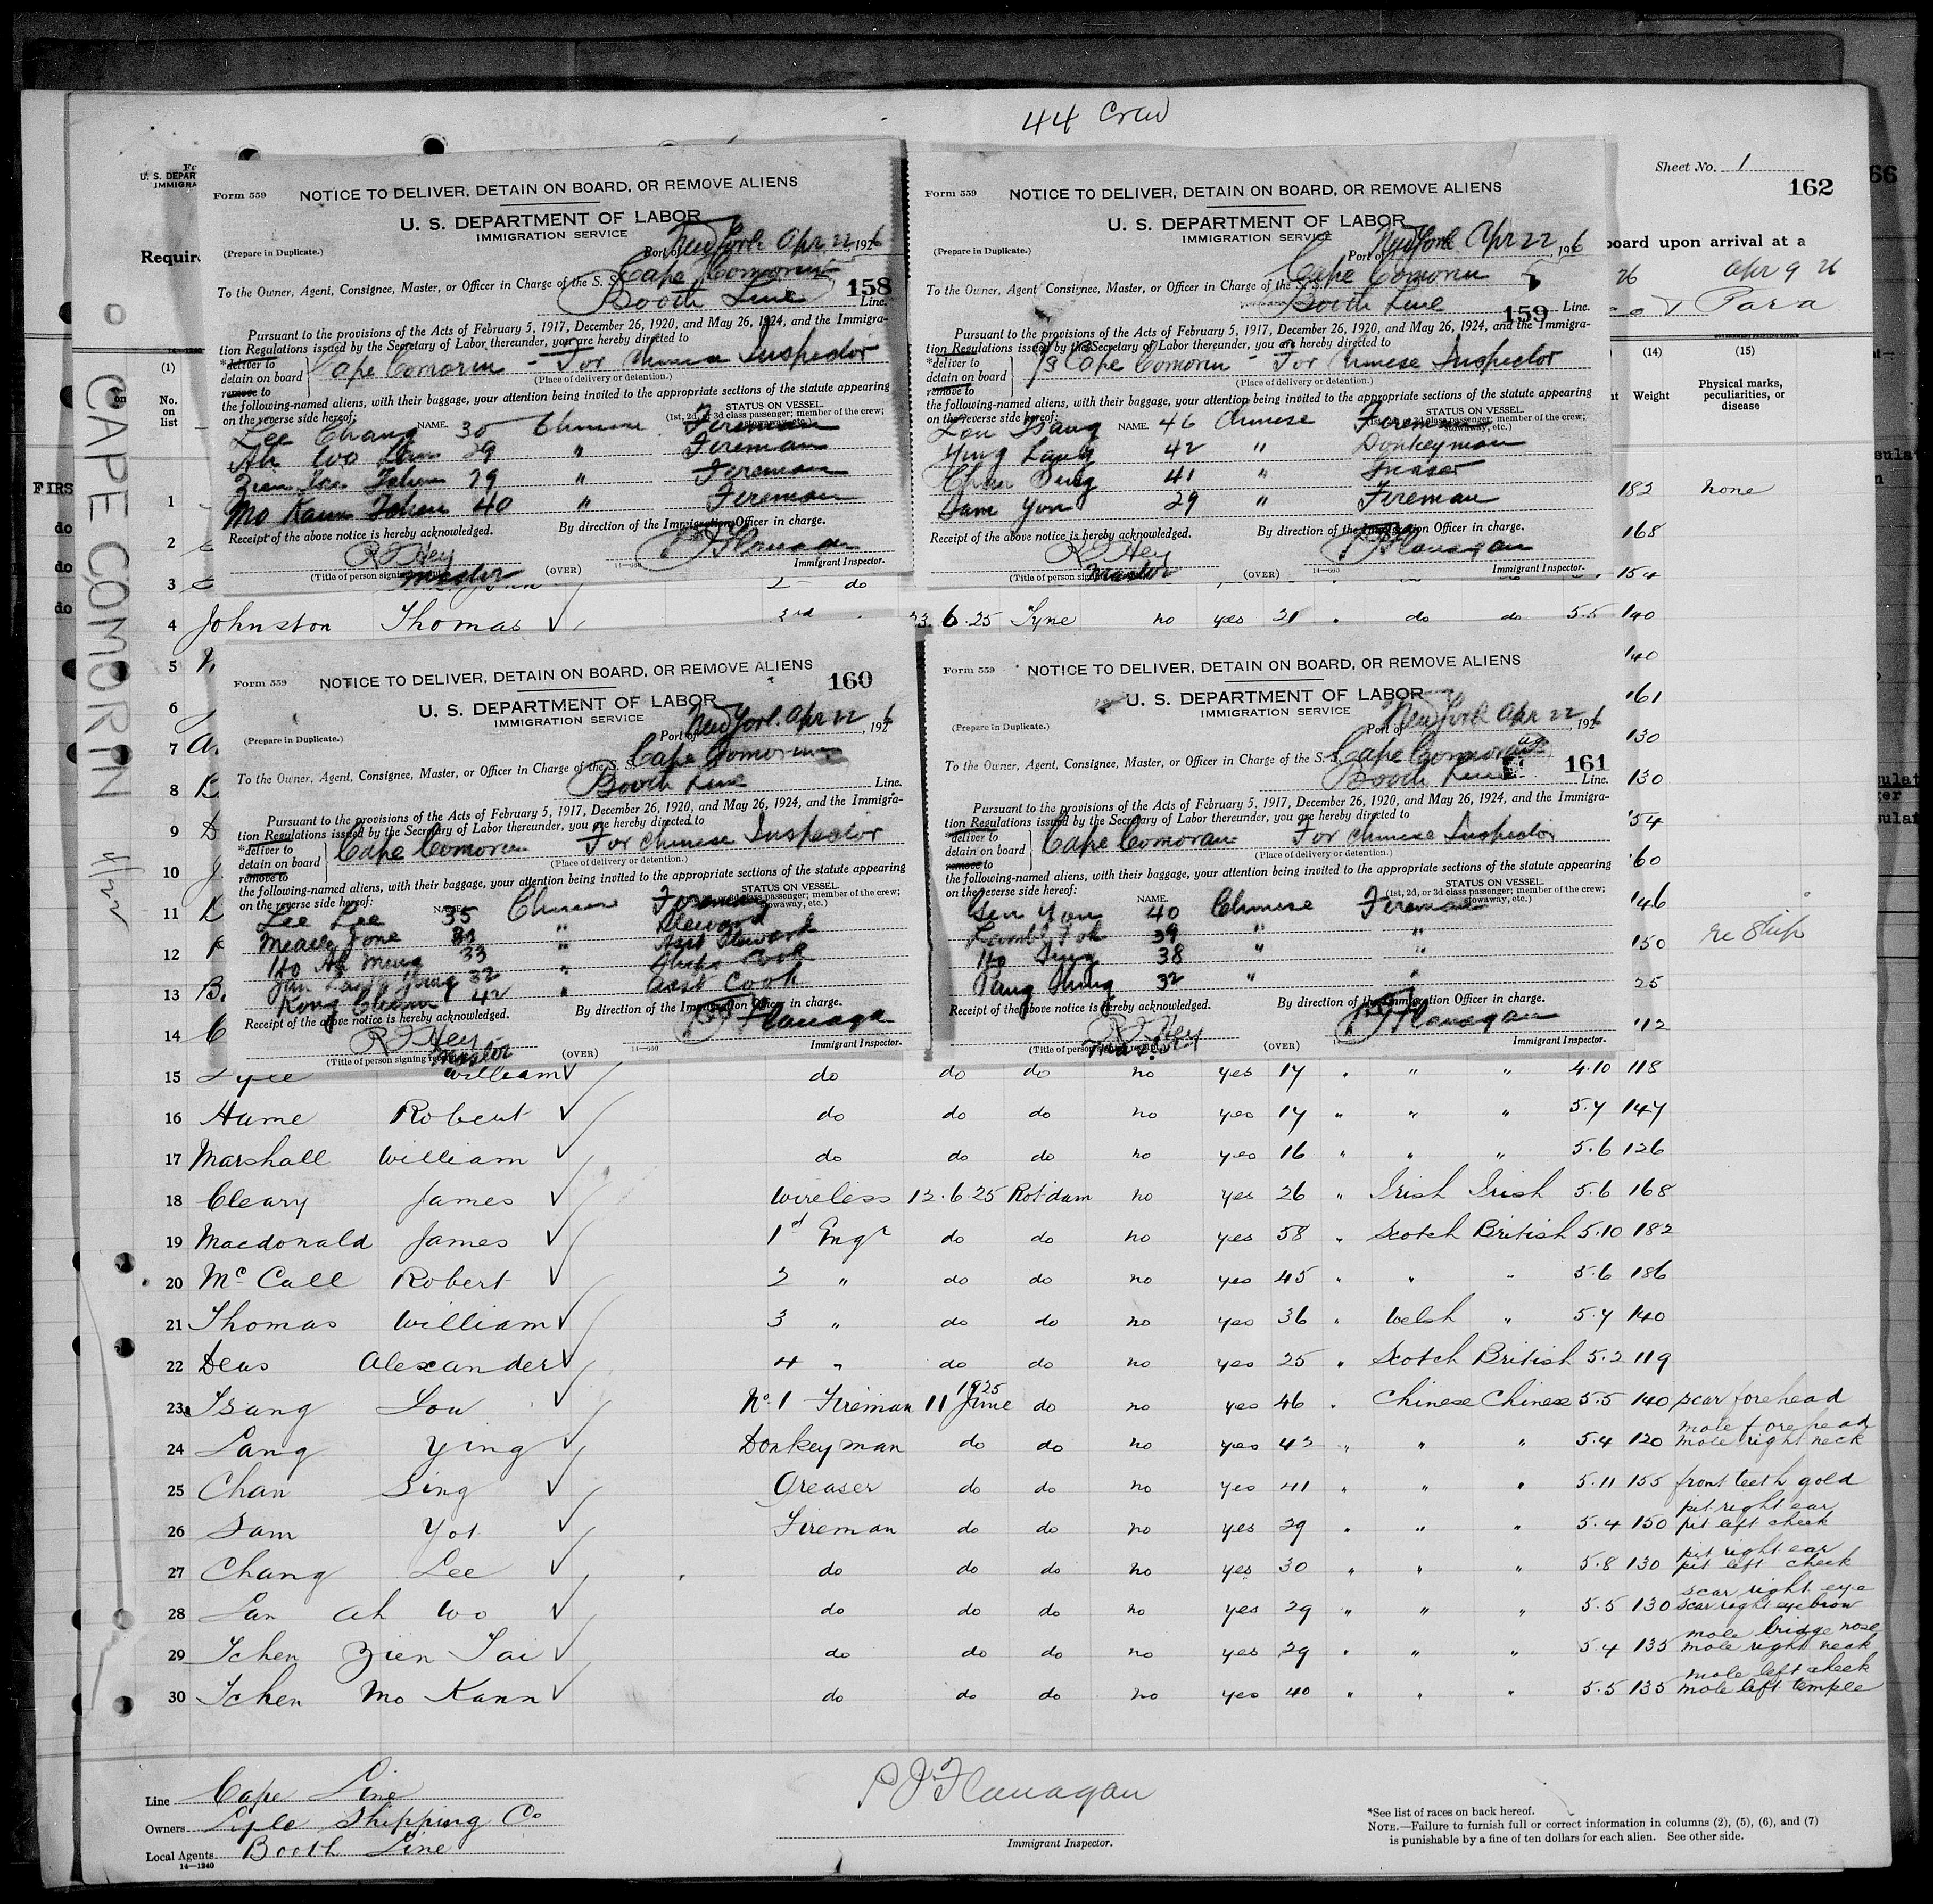 44 Crew
Sheet No. 1
162
66
U. S. DEPAR
IMMIGRA
Requir
board upon arrival at a
26 Apr 9 26
Para
CAPE COMORIN 4/22
Form 559 NOTICE TO DELIVER, DETAIN ON BOARD, OR REMOVE ALIENS
U. S. DEPARTMENT OF LABOR
IMMIGRATION SERVICE
(Prepare in Duplicate.) Port of New York Apr 22, 1926
To the Owner, Agent, Consignee, Master, or Officer in Charge of the S. S. Cape Comorin
Booth Line Line. 158
Pursuant to the provisions of the Acts of February 5, 1917, December 26, 1920, and May 26, 1924, and the Immigra-
tion Regulations issued by the Secretary of Labor thereunder, you are hereby directed to
*deliver to
detain on board
remove to
Cape Comorin - For Chinese Inspector
(Place of delivery or detention.)
the following-named aliens, with their baggage, your attention being invited to the appropriate sections of the statute appearing
on the reverse side hereof:
NAME. STATUS ON VESSEL
(1st, 2d, or 3d class passenger; member of the crew; stowaway, etc.)
Lee Chang 30 Chinese Fireman
Ah Wo Lan 29 " Fireman
Zien Tai Tchen 29 " Fireman
Mo Kann Tchen 40 " Fireman
Receipt of the above notice is hereby acknowledged. By direction of the Immigration Officer in charge.
R J Hey P J Flanagan
Master
(Title of person signing receipt.) (OVER) 14—660 Immigrant Inspector.
Form 559 NOTICE TO DELIVER, DETAIN ON BOARD, OR REMOVE ALIENS
U. S. DEPARTMENT OF LABOR
IMMIGRATION SERVICE
(Prepare in Duplicate.) Port of New York Apr 22, 1926
To the Owner, Agent, Consignee, Master, or Officer in Charge of the S. S. Cape Comorin
Booth Line Line. 159
Pursuant to the provisions of the Acts of February 5, 1917, December 26, 1920, and May 26, 1924, and the Immigra-
tion Regulations issued by the Secretary of Labor thereunder, you are hereby directed to
*deliver to
detain on board
remove to
Cape Comorin - For Chinese Inspector
(Place of delivery or detention.)
the following-named aliens, with their baggage, your attention being invited to the appropriate sections of the statute appearing
on the reverse side hereof:
NAME. STATUS ON VESSEL
(1st, 2d, or 3d class passenger; member of the crew; stowaway, etc.)
Lou Tsang 46 Chinese Fireman
Ying Lang 42 " Donkeyman
Chan Sing 41 " Greaser
Sam Yon 29 " Fireman
Receipt of the above notice is hereby acknowledged. By direction of the Immigration Officer in charge.
R J Hey P J Flanagan
Master
(Title of person signing receipt.) (OVER) 14—660 Immigrant Inspector.
(1) (14) (15)
No. on list Weight Physical marks, peculiarities, or disease
FIRS
1 182 none
2 168
3 2 do 154
4 Johnston Thomas 3rd 23.6.25 Tyne no yes 21 " do do 5.5 140
Form 559 NOTICE TO DELIVER, DETAIN ON BOARD, OR REMOVE ALIENS
160
U. S. DEPARTMENT OF LABOR
IMMIGRATION SERVICE
(Prepare in Duplicate.) Port of New York Apr 22, 1926
To the Owner, Agent, Consignee, Master, or Officer in Charge of the S. S. Cape Comorin
Booth Line Line.
Pursuant to the provisions of the Acts of February 5, 1917, December 26, 1920, and May 26, 1924, and the Immigra-
tion Regulations issued by the Secretary of Labor thereunder, you are hereby directed to
*deliver to
detain on board
remove to
Cape Comorin For Chinese Inspector
(Place of delivery or detention.)
the following-named aliens, with their baggage, your attention being invited to the appropriate sections of the statute appearing
on the reverse side hereof:
NAME. STATUS ON VESSEL
(1st, 2d, or 3d class passenger; member of the crew; stowaway, etc.)
Lee Lee 35 Chinese Fireman
Jone " Steward
Ho Ah Meng 33 " Asst Steward
32 " Ships Cook
Kong 42 " Asst Cook
Receipt of the above notice is hereby acknowledged. By direction of the Immigration Officer in charge.
R J Hey P J Flanagan
Master
(Title of person signing receipt.) (OVER) 14—660 Immigrant Inspector.
Form 559 NOTICE TO DELIVER, DETAIN ON BOARD, OR REMOVE ALIENS
U. S. DEPARTMENT OF LABOR
IMMIGRATION SERVICE
(Prepare in Duplicate.) Port of New York Apr 22, 1926
To the Owner, Agent, Consignee, Master, or Officer in Charge of the S. S. Cape Comorin
Booth Line Line. 161
Pursuant to the provisions of the Acts of February 5, 1917, December 26, 1920, and May 26, 1924, and the Immigra-
tion Regulations issued by the Secretary of Labor thereunder, you are hereby directed to
*deliver to
detain on board
remove to
Cape Comorin For Chinese Inspector
(Place of delivery or detention.)
the following-named aliens, with their baggage, your attention being invited to the appropriate sections of the statute appearing
on the reverse side hereof:
NAME. STATUS ON VESSEL
(1st, 2d, or 3d class passenger; member of the crew; stowaway, etc.)
Yon 40 Chinese Fireman
39 " "
Ho Sing 38 " "
32 " "
Receipt of the above notice is hereby acknowledged. By direction of the Immigration Officer in charge.
R J Hey P J Flanagan
Master
(Title of person signing receipt.) (OVER) Immigrant Inspector.
5 140
6 161
7 130
8 130
9 154
10 160
11 146
12 150 re Ship
13 25
14 112
15 Lyle William do do do no yes 17 " " " 4.10 118
16 Hume Robert do do do no yes 17 " " " 5.7 147
17 Marshall William do do do no yes 16 " " " 5.6 126
18 Cleary James Wireless 12.6.25 Rotdam no yes 26 " Irish Irish 5.6 168
19 Macdonald James 1st Engr do do no yes 58 " Scotch British 5.10 182
20 McCall Robert 2 " do do no yes 45 " " " 5.6 186
21 Thomas William 3 " do do no yes 36 " Welsh " 5.7 140
22 Deas Alexander 4 " do do no yes 25 " Scotch British 5.2 119
23 Tsang Lou No 1 Fireman 11 June 1925 do no yes 46 " Chinese Chinese 5.5 140 scar forehead
24 Lang Ying Donkeyman do do no yes 42 " " " 5.4 120 mole forehead mole right neck
25 Chan Sing Greaser do do no yes 41 " " " 5.11 155 front teeth gold
26 Sam Yot Fireman do do no yes 29 " " " 5.4 150 pit right ear pit left cheek
27 Chang Lee do do do no yes 30 " " " 5.8 130 pit right ear pit left cheek
28 Lan Ah Wo do do do no yes 29 " " " 5.5 130 scar right eye scar right eyebrow
29 Tchen Zien Tai do do do no yes 29 " " " 5.4 135 mole bridge nose mole right neck
30 Tchen Mo Kann do do do no yes 40 " " " 5.5 135 mole left cheek mole left temple
Line Cape Line
Owners Lyle Shipping Co
Local Agents Booth Line
14—1240
P J Flanagan
Immigrant Inspector.
*See list of races on back hereof.
NOTE.—Failure to furnish full or correct information in columns (2), (5), (6), and (7)
is punishable by a fine of ten dollars for each alien. See other side.